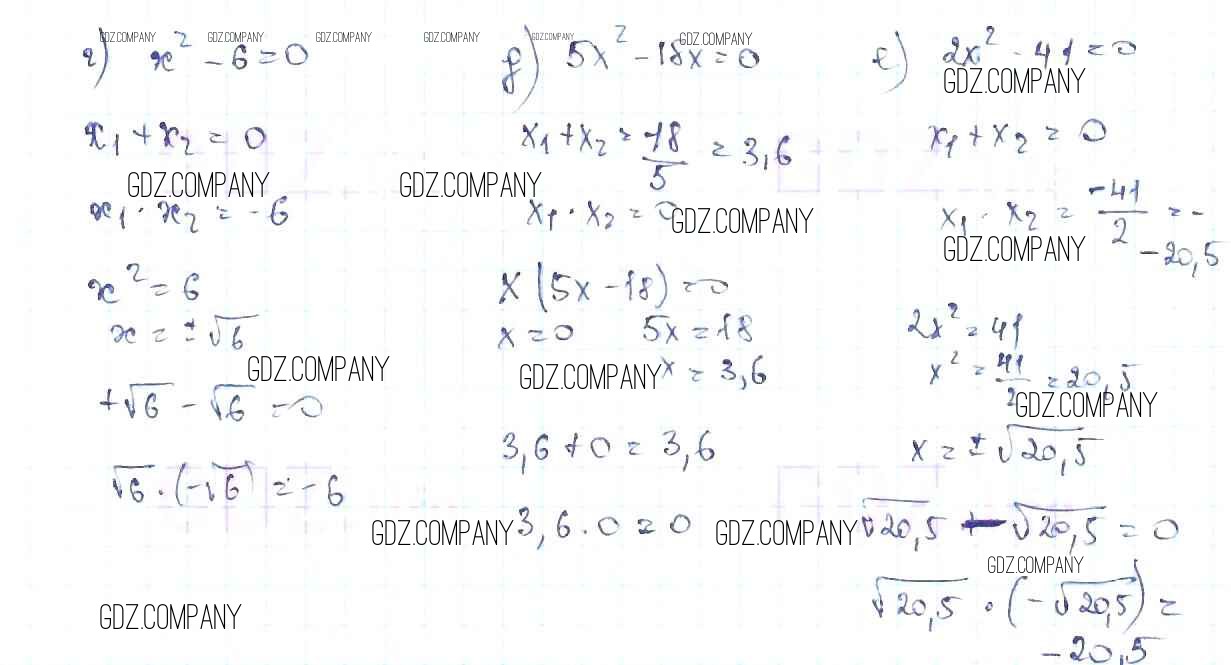 GDZ.COMPANY GDZ.COMPANY GDZ.COMPANY GDZ.COMPANY GDZ.COMPANY GDZ.COMPANY
г) x² - 6 = 0
x₁ + x₂ = 0
GDZ.COMPANY
x₁ · x₂ = -6
x² = 6
x = ±√6
GDZ.COMPANY
+√6 - √6 = 0
√6 · (-√6) = -6
GDZ.COMPANY
д) 5x² - 18x = 0
x₁ + x₂ = 18/5 = 3,6
GDZ.COMPANY
x₁ · x₂ = 0
GDZ.COMPANY
x (5x - 18) = 0
x = 0 5x = 18
GDZ.COMPANY x = 3,6
3,6 + 0 = 3,6
GDZ.COMPANY 3,6 · 0 = 0 GDZ.COMPANY
е) 2x² - 41 = 0
GDZ.COMPANY
x₁ + x₂ = 0
x₁ · x₂ = -41/2 = -
GDZ.COMPANY -20,5
2x² = 41
x² = 41/2 = 20,5
GDZ.COMPANY
x = ±√20,5
√20,5 - √20,5 = 0
GDZ.COMPANY
√20,5 · (-√20,5) =
-20,5